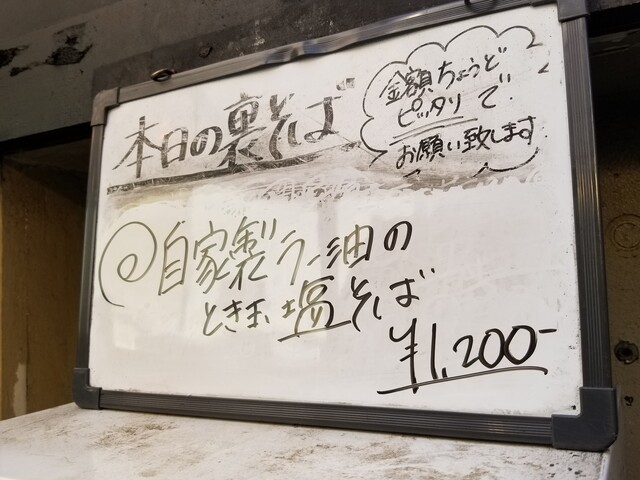 本日の裏そば
金額ちょうど
ピッタリで
お願い致します
@自家製ラー油の
ときたま塩そば
¥1,200-